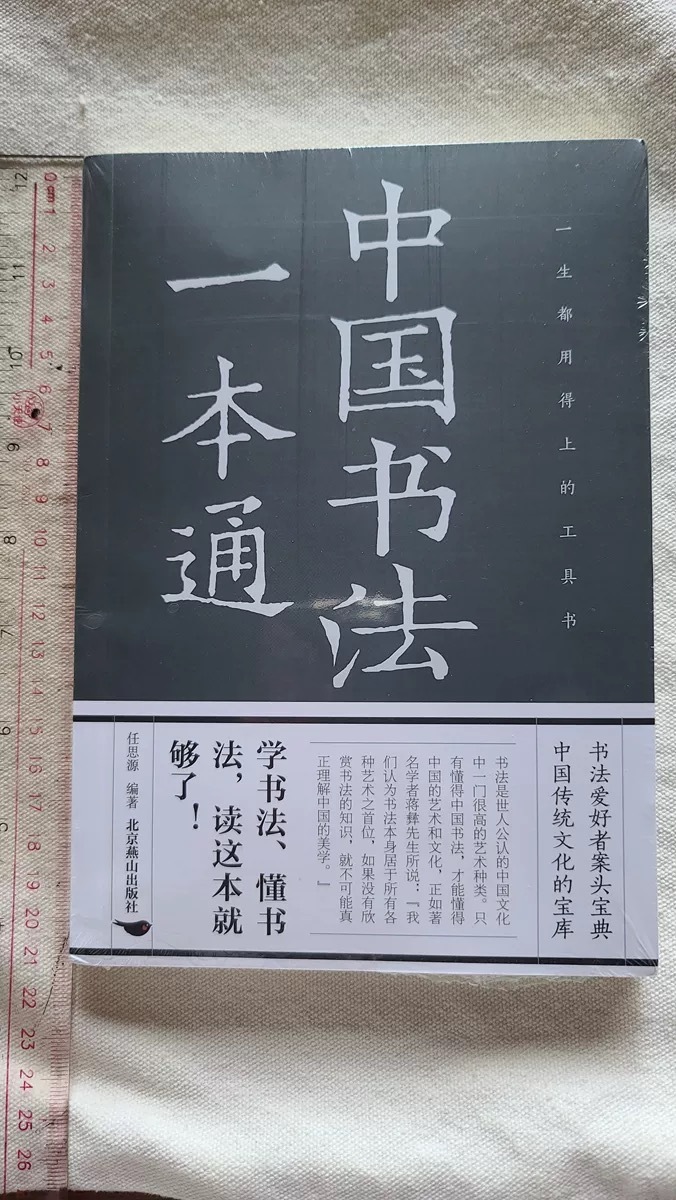 一生都用得上的工具书
中国书法
一本通
书法爱好者案头宝典
中国传统文化的宝库
书法是世人公认的中国文化
中一门很高的艺术种类。只
有懂得中国书法，才能懂得
中国的艺术和文化，正如著
名学者蒋彝先生所说：“我
们认为书法本身居于所有各
种艺术之首位，如果没有欣
赏书法的知识，就不可能真
正理解中国的美学。”
学书法、懂书
法，读这本就
够了！
任思源 编著 北京燕山出版社
0cm 1 2 3 4 5 6 7 8 9 10 11 12 13 14 15 16 17 18 19 20 21 22 23 24 25 26
12 11 10 9 8 7 6 5